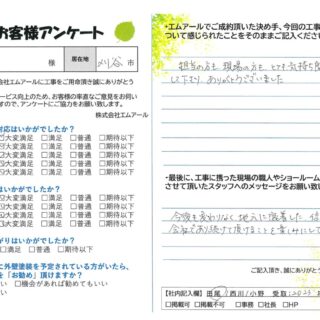 お客様アンケート
様 居在地 刈谷市
株式会社エムアールに工事をご用命頂き誠にありがとう
サービス向上のため、お客様の率直なご意見をお伺い
ますので、アンケートにご協力をお願い致します。
株式会社エムアール
対応はいかがでしたか？
大変満足 □満足 □普通 □期待以下
大変満足 □満足 □普通 □期待以下
大変満足 □満足 □普通 □期待以下
大変満足 □満足 □普通 □期待以下
大変満足 □満足 □普通 □期待以下
大変満足 □満足 □普通 □期待以下
大変満足 □満足 □普通 □期待以下
がりはいかがでしたか？
□満足 □普通 □期待以下
に外壁塗装を予定されている方がいたら、
を「お勧め」頂けますか？
い □機会があれば勧めてもいい
い
・エムアールでご成約頂いた決め手、今回の工事
ついて感じられたことをそのままご記入ください
担当の方も 現場の方も とても気持ち
ありがとうございました
・最後に、工事に携った現場の職人やショールーム
させて頂いたスタッフへのメッセージをお願い致
今後も変わりなく 地元に密着した
会社であり続けて頂けることを楽しみにして
ご記入頂き、誠にありがとう
【社内記入欄】 田尾／西川／小野 受取：2023
□掲載可 □掲載不可 □事方 □社長 □HP